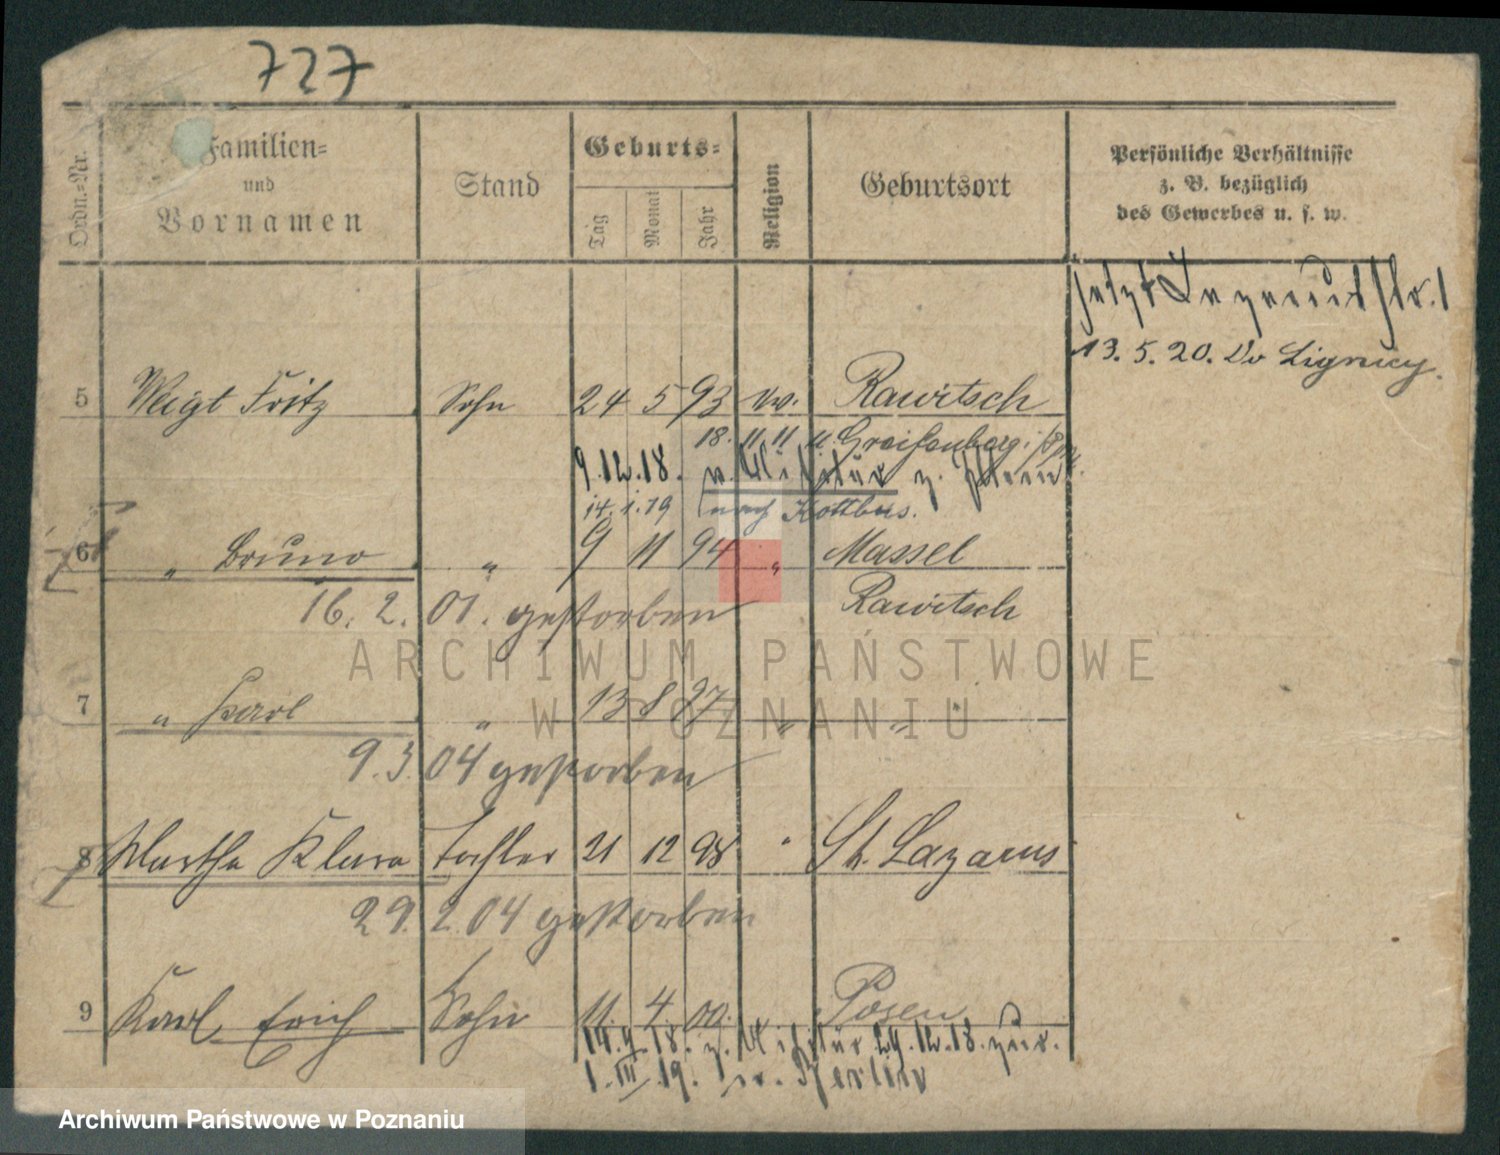 727
Ordn.-Nr.
Familien-
und
Vornamen
Stand
Geburts-
Tag
Monat
Jahr
Religion
Geburtsort
Persönliche Verhältnisse
z. B. bezüglich
des Gewerbes u. s. w.
jetzt str. 1
13. 5. 20.
5 Weigt Fritz Sohn 24 5 93 ev. Rawitsch
18. 11 11 Greifenberg
9. 12. 18. v. Militär z.
14. 1. 19 nach Kottbus.
6 " Bruno " 9 11 94 " Massel
16. 2. 01. gestorben Rawitsch
7 " Karl " 13 8 97 " "
9. 3. 04 gestorben
8 Martha Klara Tochter 21 12 98 " St. Lazarus
29. 2. 04 gestorben
9 Karl, Erich Sohn 11. 4 00. Posen
14. 9. 18. z. Militär 29. 12. 18. zur.
1. III. 19. n. Berlin
ARCHIWUM PAŃSTWOWE
W POZNANIU
Archiwum Państwowe w Poznaniu